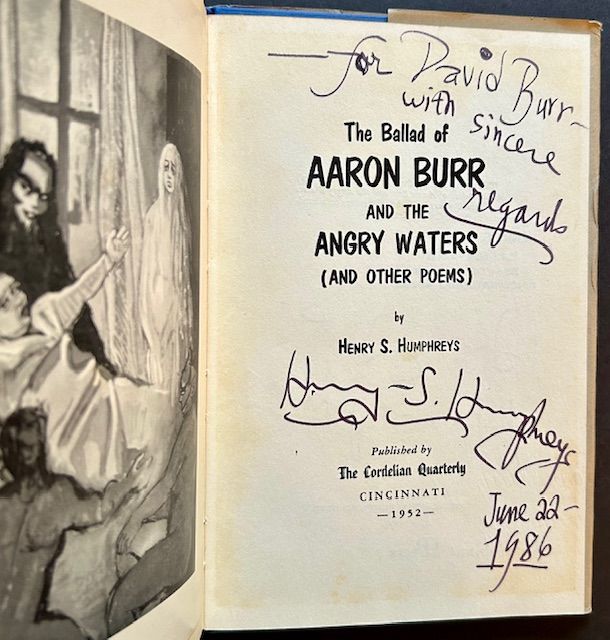 —for David Burr—
with sincere
The Ballad of
AARON BURR
regards
AND THE
ANGRY WATERS
(AND OTHER POEMS)
by
HENRY S. HUMPHREYS
Henry-S. Humphreys
Published by
The Cordelian Quarterly
CINCINNATI
—1952—
June 22-
1986